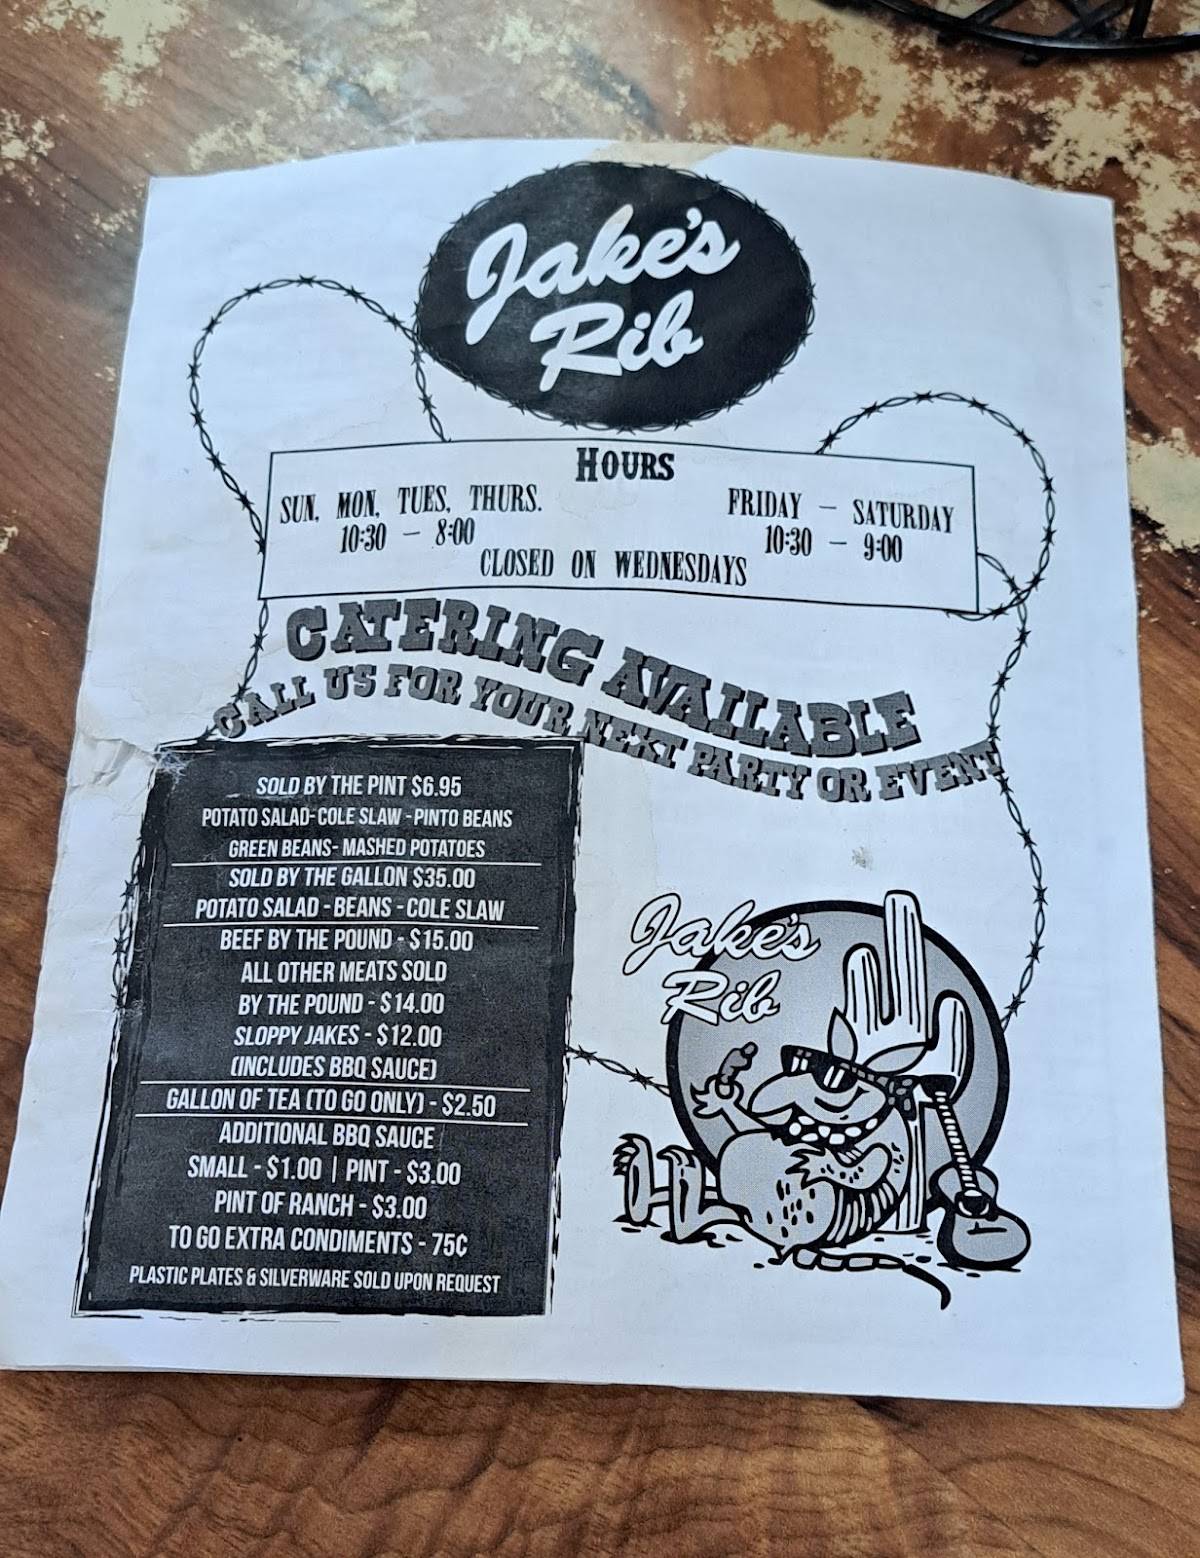 Jake's
Rib
HOURS
SUN, MON, TUES, THURS.
10:30 – 8:00
FRIDAY – SATURDAY
10:30 – 9:00
CLOSED ON WEDNESDAYS
CATERING AVAILABLE
CALL US FOR YOUR NEXT PARTY OR EVENT
SOLD BY THE PINT $6.95
POTATO SALAD-COLE SLAW -PINTO BEANS
GREEN BEANS- MASHED POTATOES
SOLD BY THE GALLON $35.00
POTATO SALAD - BEANS - COLE SLAW
BEEF BY THE POUND - $15.00
ALL OTHER MEATS SOLD
BY THE POUND - $14.00
SLOPPY JAKES - $12.00
(INCLUDES BBQ SAUCE)
GALLON OF TEA (TO GO ONLY) - $2.50
ADDITIONAL BBQ SAUCE
SMALL - $1.00 | PINT - $3.00
PINT OF RANCH - $3.00
TO GO EXTRA CONDIMENTS - 75¢
PLASTIC PLATES & SILVERWARE SOLD UPON REQUEST
Jake's
Rib